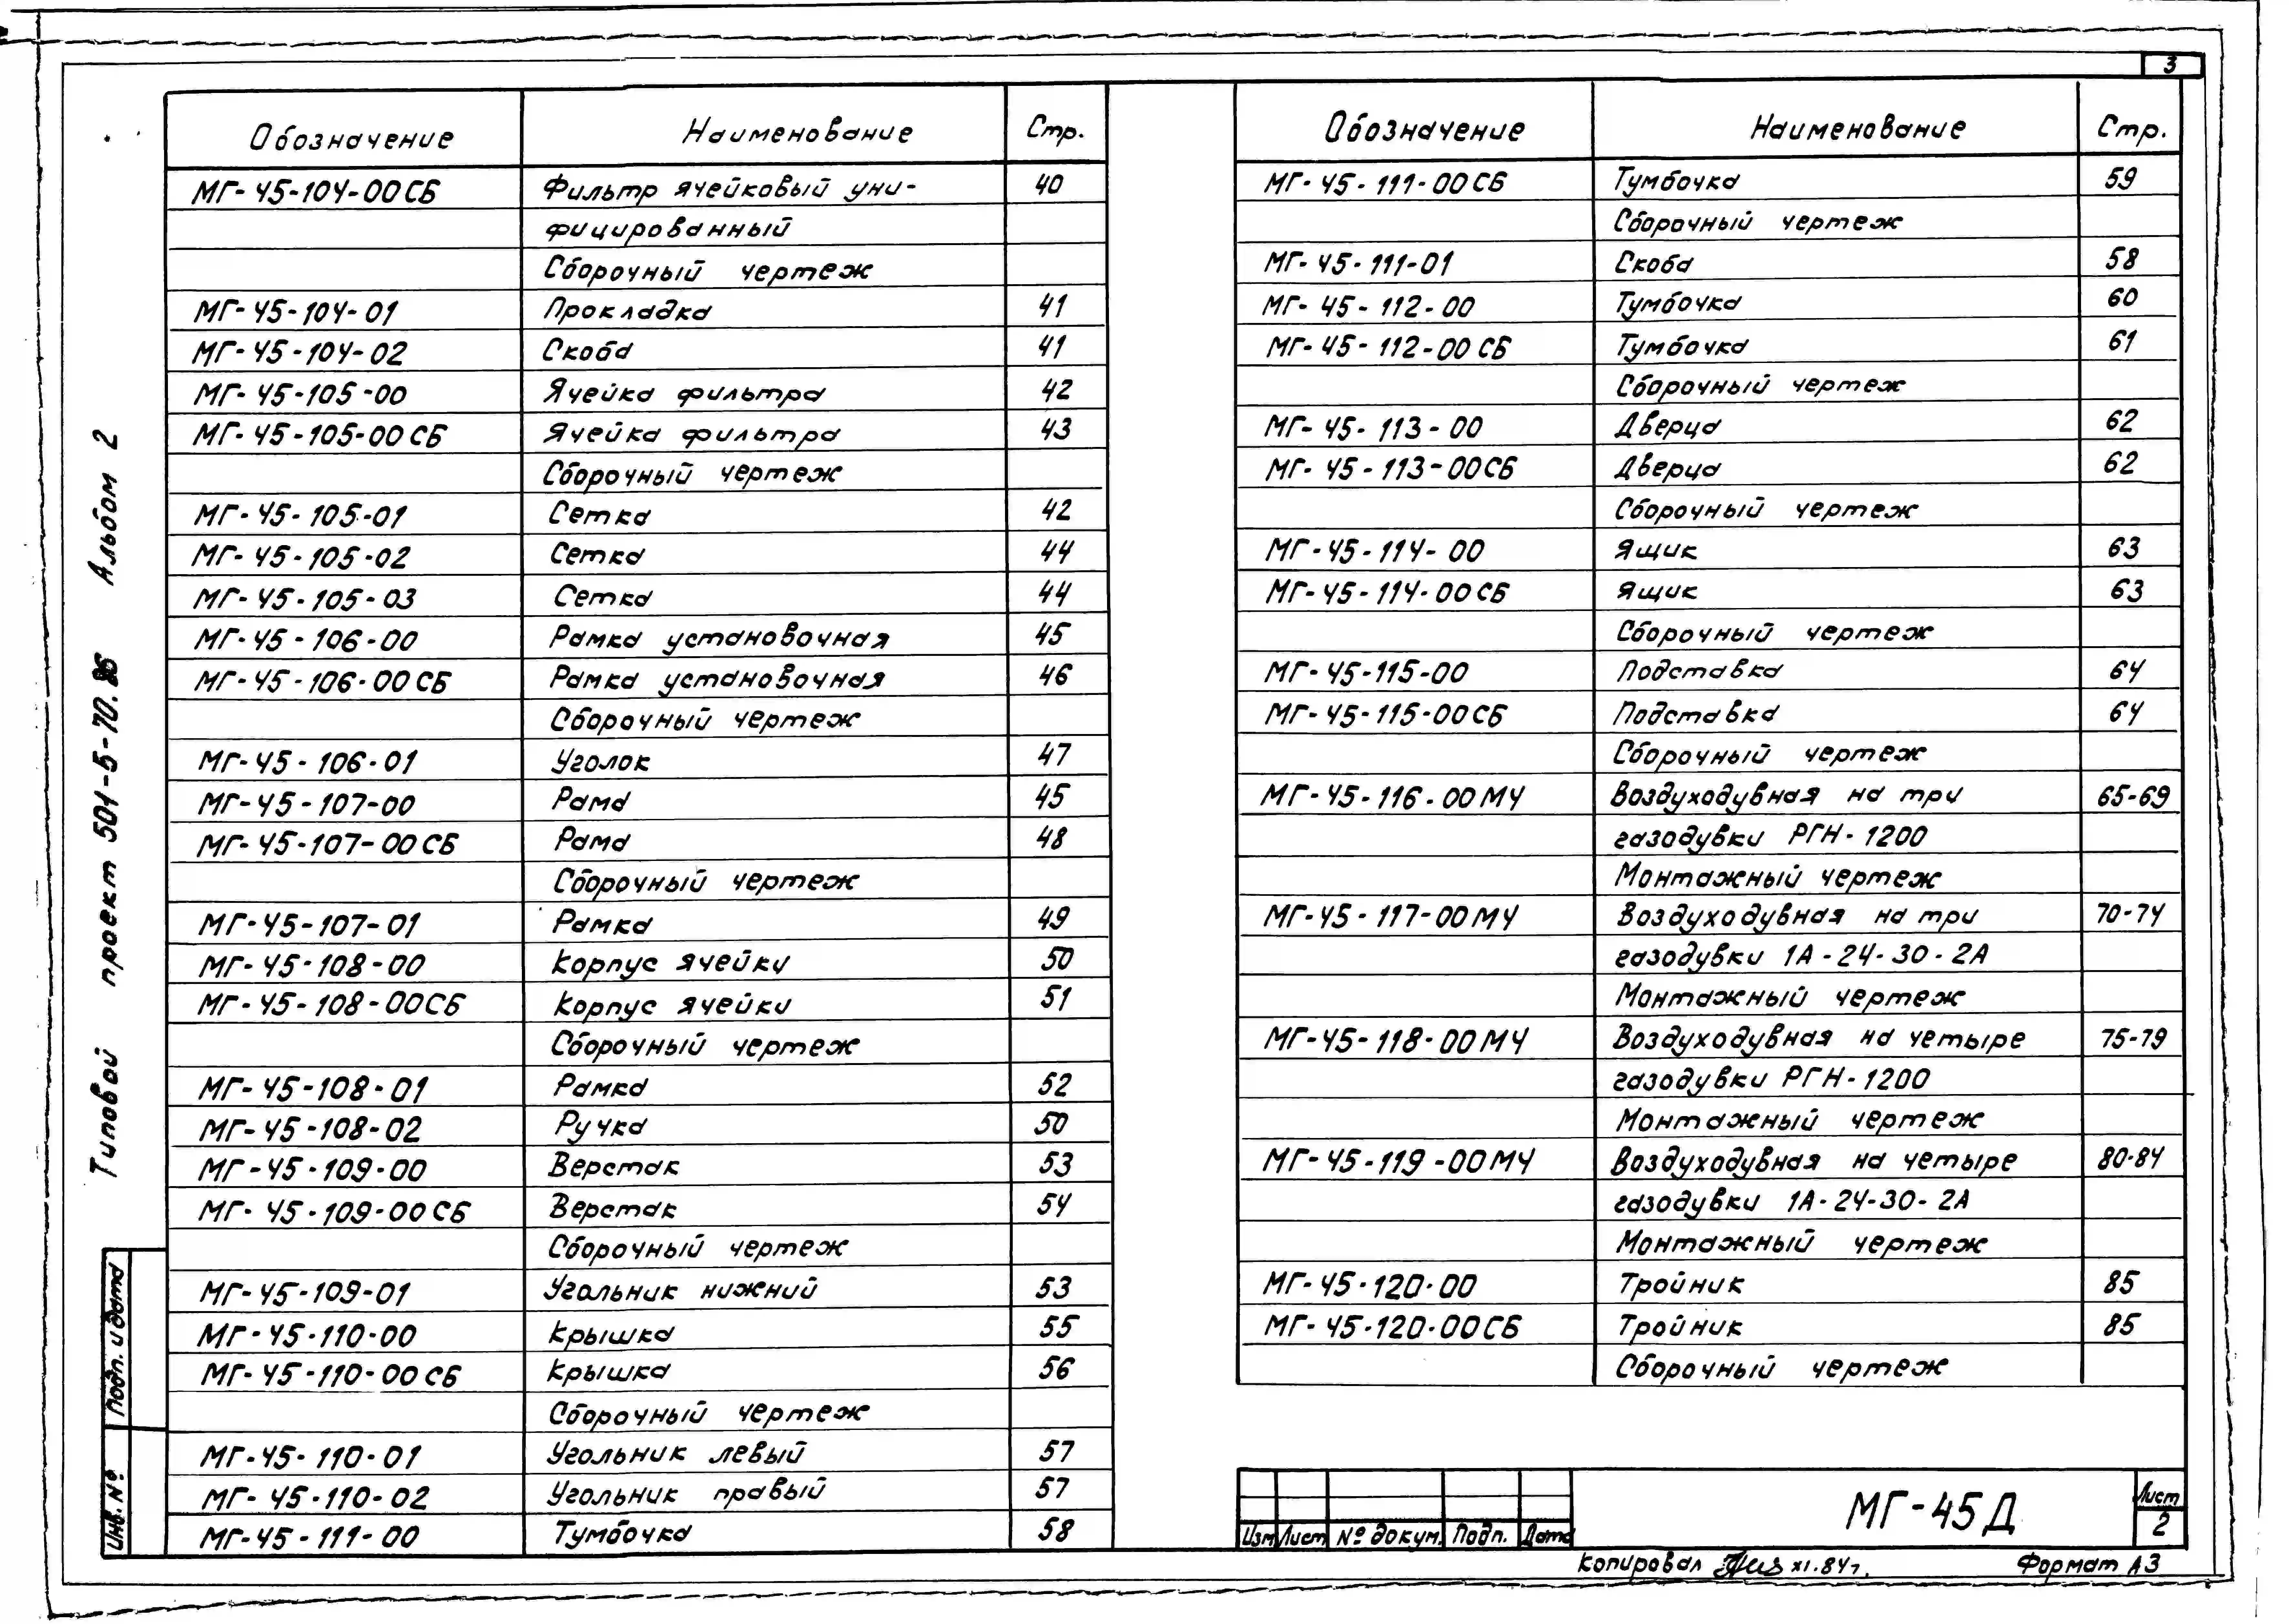 3
Обозначение Наименование Стр.
МГ-45-104-00СБ Фильтр ячейковый уни- 40
фицированный
Сборочный чертеж
МГ-45-104-01 Прокладка 41
МГ-45-104-02 Скоба 41
МГ-45-105-00 Ячейка фильтра 42
МГ-45-105-00СБ Ячейка фильтра 43
Сборочный чертеж
МГ-45-105-01 Сетка 42
МГ-45-105-02 Сетка 44
МГ-45-105-03 Сетка 44
МГ-45-106-00 Рамка установочная 45
МГ-45-106-00СБ Рамка установочная 46
Сборочный чертеж
МГ-45-106-01 Уголок 47
МГ-45-107-00 Рама 45
МГ-45-107-00СБ Рама 48
Сборочный чертеж
МГ-45-107-01 Рамка 49
МГ-45-108-00 Корпус ячейки 50
МГ-45-108-00СБ Корпус ячейки 51
Сборочный чертеж
МГ-45-108-01 Рамка 52
МГ-45-108-02 Ручка 50
МГ-45-109-00 Верстак 53
МГ-45-109-00СБ Верстак 54
Сборочный чертеж
МГ-45-109-01 Угольник нижний 53
МГ-45-110-00 Крышка 55
МГ-45-110-00СБ Крышка 56
Сборочный чертеж
МГ-45-110-01 Угольник левый 57
МГ-45-110-02 Угольник правый 57
МГ-45-111-00 Тумбочка 58
Обозначение Наименование Стр.
МГ-45-111-00СБ Тумбочка 59
Сборочный чертеж
МГ-45-111-01 Скоба 58
МГ-45-112-00 Тумбочка 60
МГ-45-112-00СБ Тумбочка 61
Сборочный чертеж
МГ-45-113-00 Дверца 62
МГ-45-113-00СБ Дверца 62
Сборочный чертеж
МГ-45-114-00 Ящик 63
МГ-45-114-00СБ Ящик 63
Сборочный чертеж
МГ-45-115-00 Подставка 64
МГ-45-115-00СБ Подставка 64
Сборочный чертеж
МГ-45-116-00МЧ Воздуходувная на три 65-69
газодувки РГН-1200
Монтажный чертеж
МГ-45-117-00МЧ Воздуходувная на три 70-74
газодувки 1А-24-30-2А
Монтажный чертеж
МГ-45-118-00МЧ Воздуходувная на четыре 75-79
газодувки РГН-1200
Монтажный чертеж
МГ-45-119-00МЧ Воздуходувная на четыре 80-84
газодувки 1А-24-30-2А
Монтажный чертеж
МГ-45-120-00 Тройник 85
МГ-45-120-00СБ Тройник 85
Сборочный чертеж
Типовой проект 501-5-70.86 Альбом 2
Подп. и дата
Инв. №
Изм Лист № докум. Подп. Дата
МГ-45Д
Лист
2
Копировал XI.84г. Формат А3